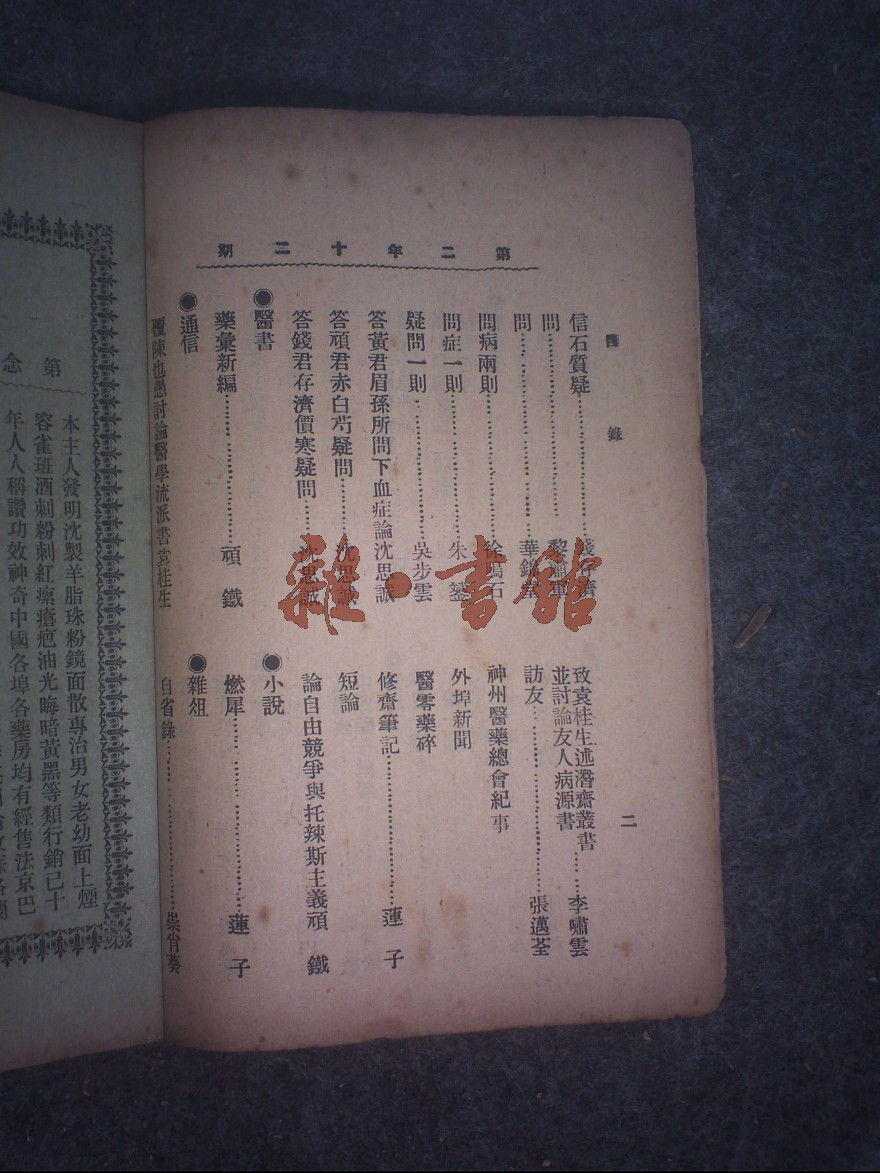 第二年十二期
目錄
二
信石質疑
問
問
問病兩則
問症一則 朱鎏
疑問一則 吳步雲
答黃君眉孫所問下血症論 沈思誠
答頑君赤白芍疑問 沈思誠
答錢君存濟價寒疑問 沈思誠
●醫書
藥彙新編 頑鐵
●通信
覆陳也愚討論醫學流派書 袁桂生
致袁桂生述潛齋叢書
並討論友人病源書 李嘯雲
訪友 張邁荃
神州醫藥總會紀事
外埠新聞
醫零藥碎
修齋筆記 蓮子
短論
論自由競爭與托辣斯主義 頑鐵
●小說
燃犀 蓮子
●雜俎
自省錄
第念
本主人發明沈製羊脂珠粉鏡面散專治男女老幼面上煙
容雀斑酒刺粉刺紅瘰瘡疤油光晦暗黃黑等類行銷已十
年人人稱讚功效神奇中國各埠各藥房均有經售法京巴
雜·書館